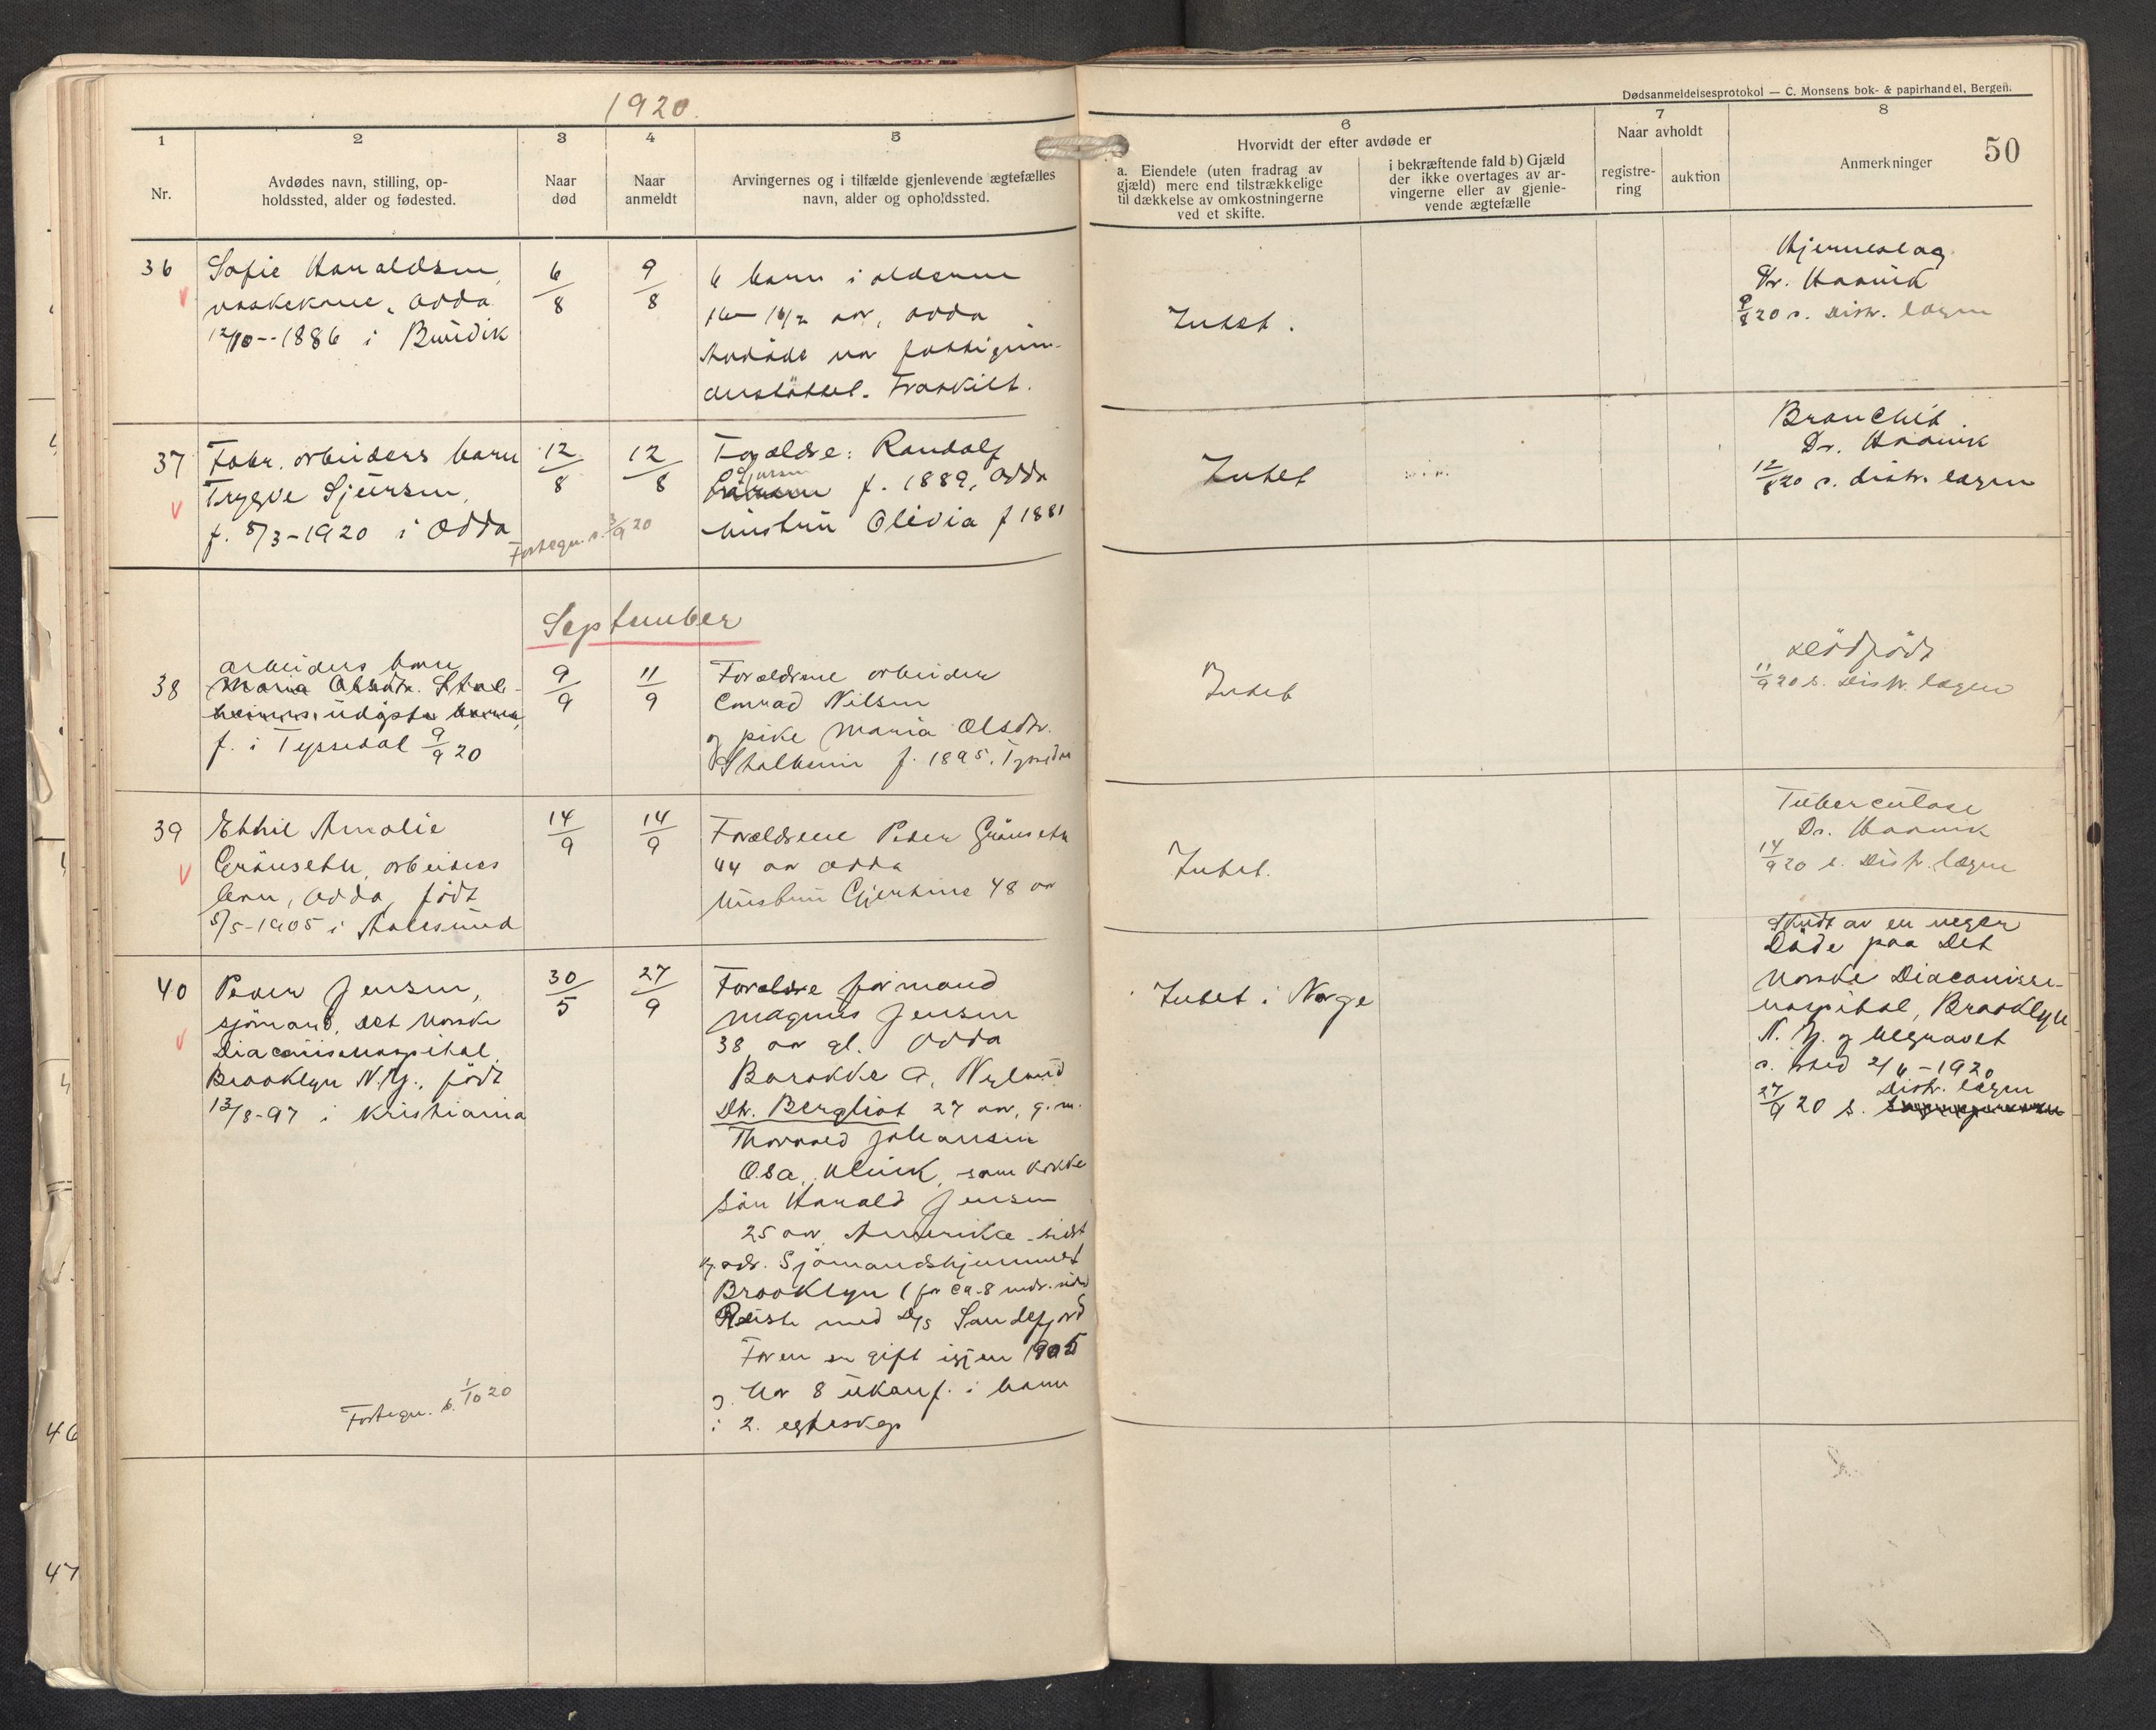 1920.
Dødsanmeldelsesprotokol — C. Monsens bok- & papirhandel, Bergen.
50
1
2
3
4
5
6
7
8
Nr.
Avdødes navn, stilling, op-
holdssted, alder og fødested.
Naar
død
Naar
anmeldt
Arvingernes og i tilfælde gjenlevende ægtefælles
navn, alder og opholdssted.
Hvorvidt der efter avdøde er
a. Eiendele (uten fradrag av
gjæld) mere end tilstrækkelige
til dækkelse av omkostningerne
ved et skifte.
i bekræftende fald b) Gjæld
der ikke overtages av ar-
vingerne eller av gjenle-
vende ægtefælle
Naar avholdt
registre-
ring
auktion
Anmerkninger
36
Sofie Haraldsen
vaskekone, Odda
12/10--1886 i
6/8
9/8
6 barn i alderen
16- 1 1/2 aar, Odda
Avdøde var fattigun-
derstøttet. Fraskilt.
Intet.
Hjerneslag
Dr. Haavik
9/8 20 s. Distr. lægen
37
Fabr. arbeiders barn
Trygve Sjursen,
f. 8/3-1920 i Odda
12/8
12/8
Fortegn. s. 3/9 20
Forældre: Randolf
Sjursen
f. 1889, Odda
Hustru Olivia f 1881
Intet
Bronchit
Dr. Haavik
12/8 20 s. distr. lægen
September
38
arbeiders barn
Maria Olsdtr. Stal-
heims. udøpte barn,
f. i Tyssedal 9/9 20
9/9
11/9
Forældrene arbeider
Conrad Nilsen
og pike Maria Olsdtr.
Stalheim f. 1895. Tyssedal
Intet
Dødfødt
11/9 20 s. Distr. lægen
39
Ethil Amalie
Grönseth, arbeiders
barn, Odda, født
8/5-1905 i Aalesund
14/9
14/9
Forældrene Peder Grönseth
44 aar Odda
Hustru Gjertine 48 aar
Intet.
Tuberculose
Dr. Haavik
14/9 20 s. Distr. lægen
40
Peder Jensen,
sjömand, Det Norske
Diaconissehospital,
Brooklyn N.Y., født
13/8-97 i Kristiania
30/5
27/9
Forældre formand
Magnus Jensen
38 aar gl. Odda
Barakke a, Nyland
Dtr. Bergliot 27 aar, g.m.
Thorvald Johansen
Osa, Ulvik, som kokke
Sön Harald Jensen
25 aar Amerika - sidst
kj. adr. Sjömandshjemmet
Brooklyn (for ca. 8 mdr. siden
Reiste med D/s Sandefjord
Faren er gift igjen 1905
og har 8 ukonf. i barn
i 2. egteskap
Intet i Norge
Skudt av en neger
Døde paa Det
Norske Diaconisse-
hospital, Brooklyn
N. Y. og begravet
s. sted 2/6-1920
27/9 20 s. Distr. lægen
Fortegn. s. 1/10 20
46
47